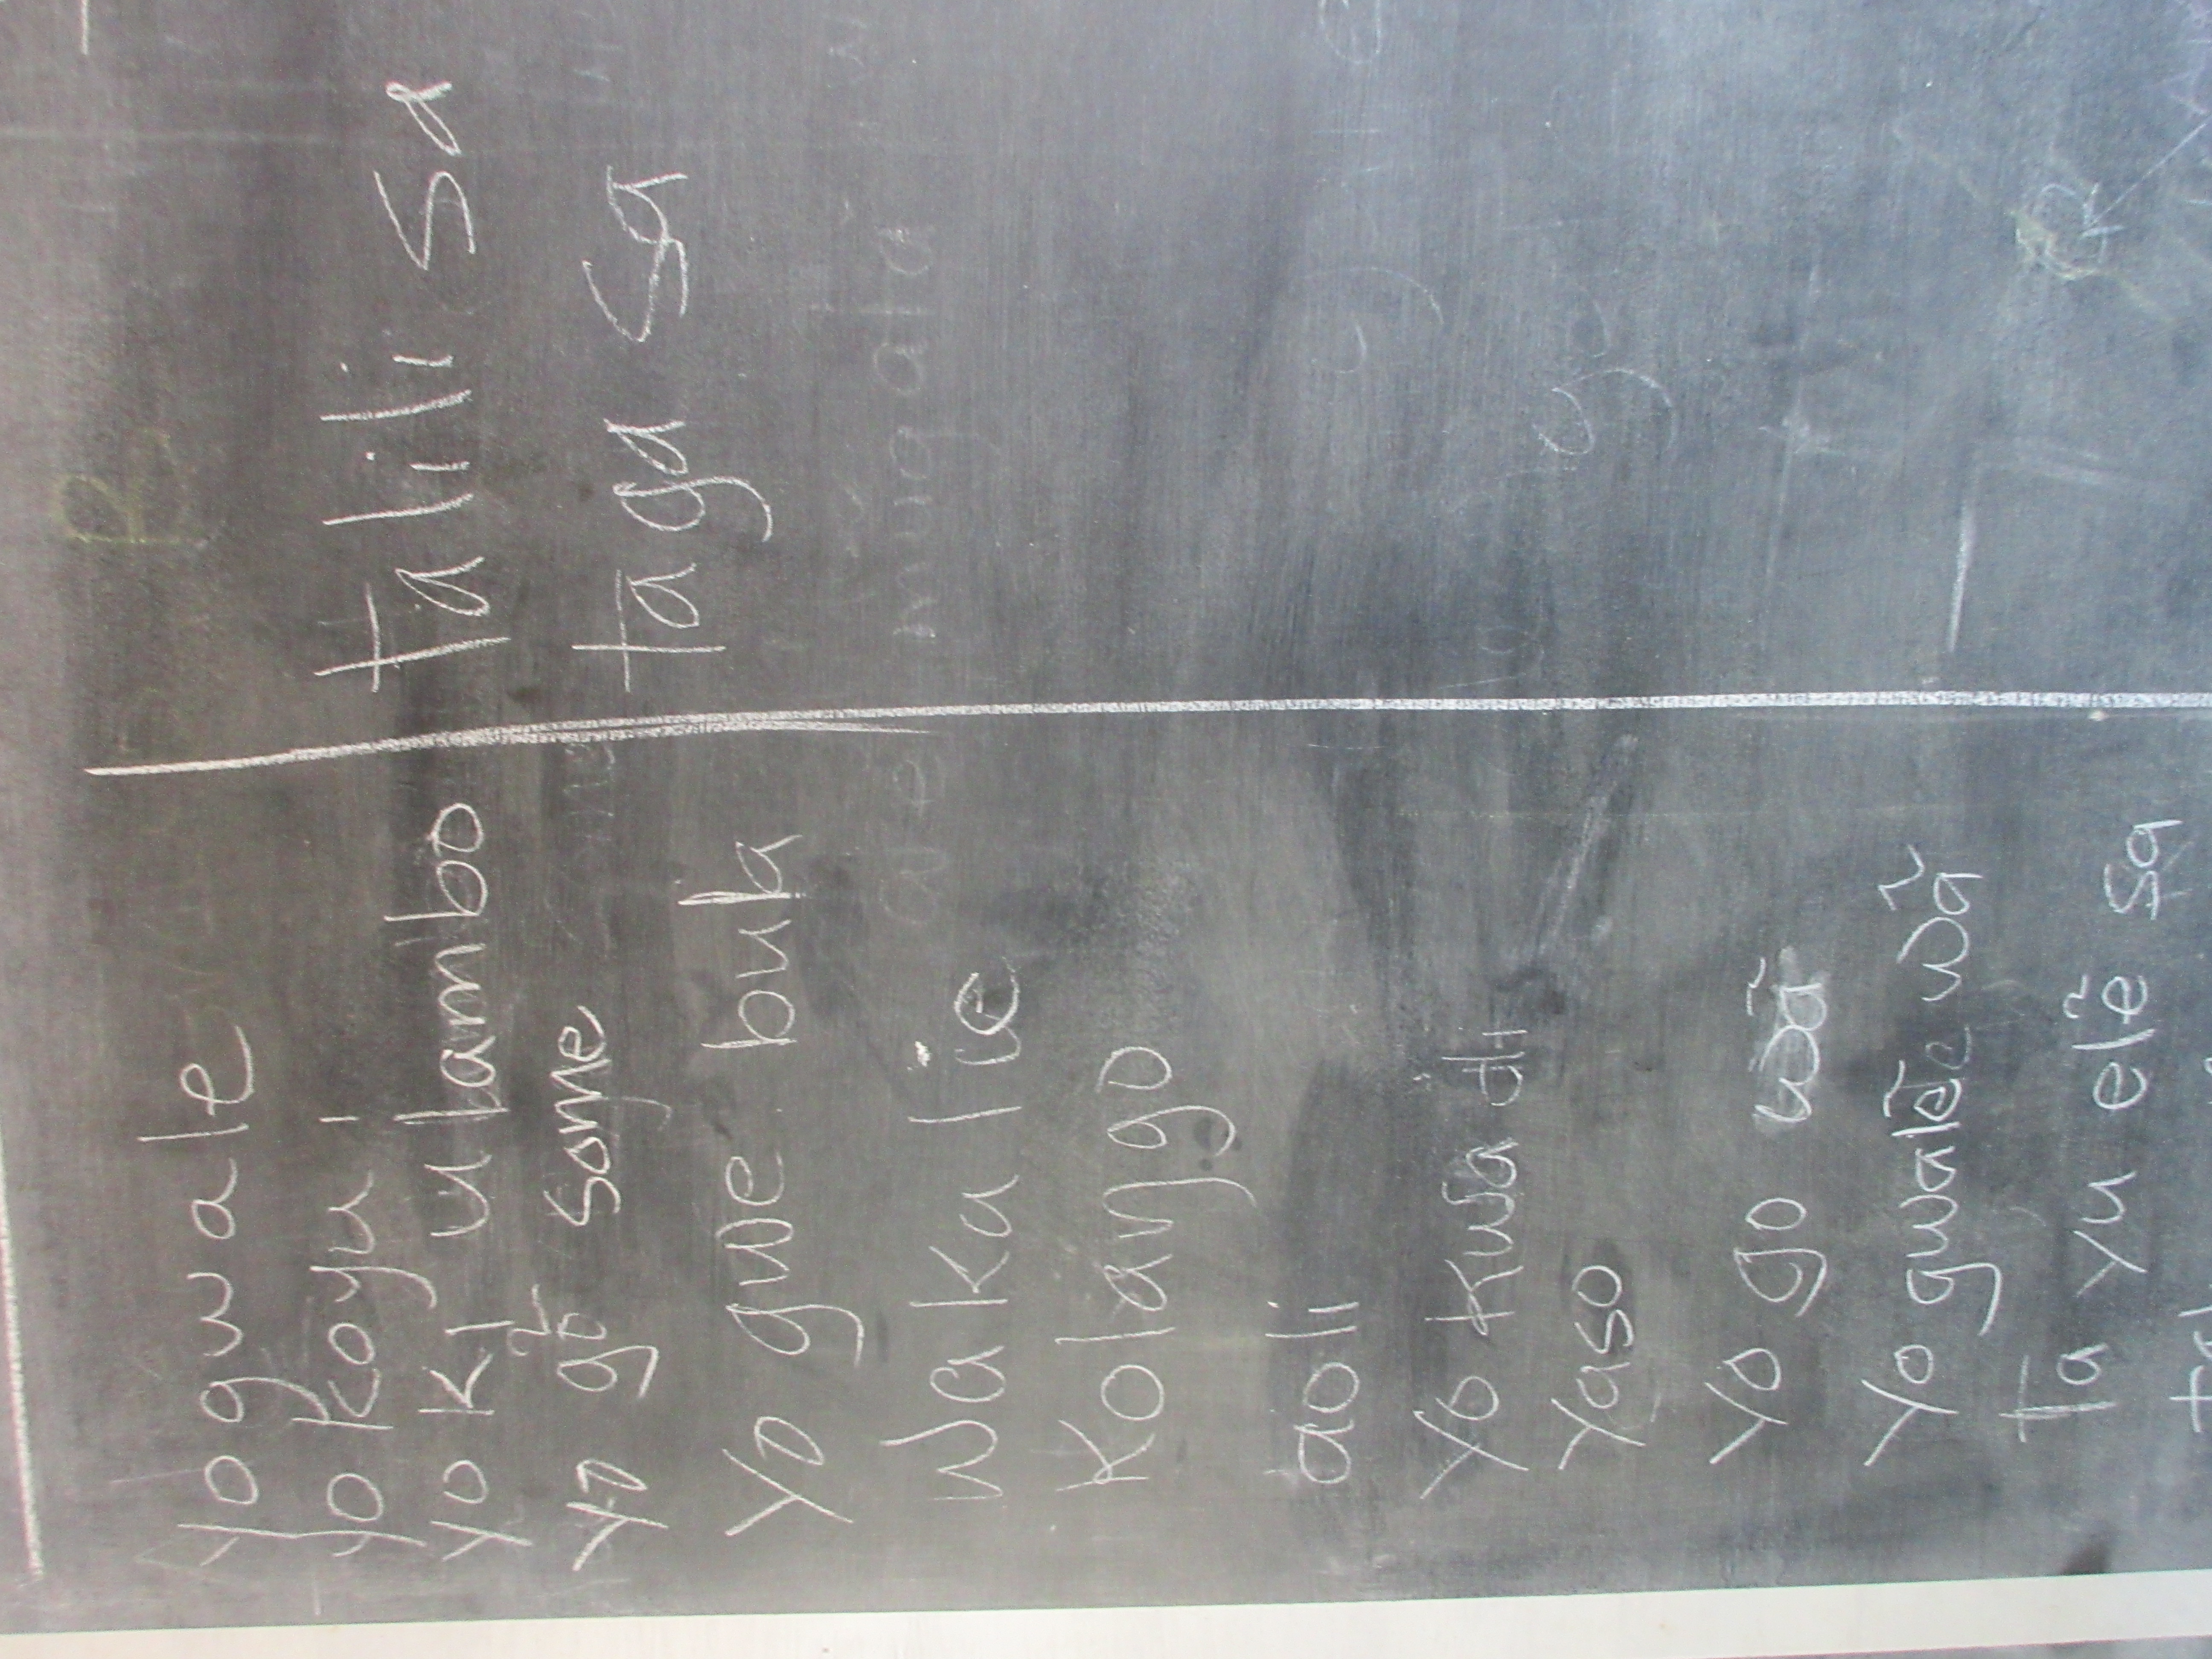 yo gwale
yo koyu i
yo ki ulambo
yo gõ some
yo gwe buk
wakalie
Kolango
aoli
yo kwa di
yaso
yo go wã
yo gwalẽe wã
ta yu elẽ sa
talili sa
taga sa